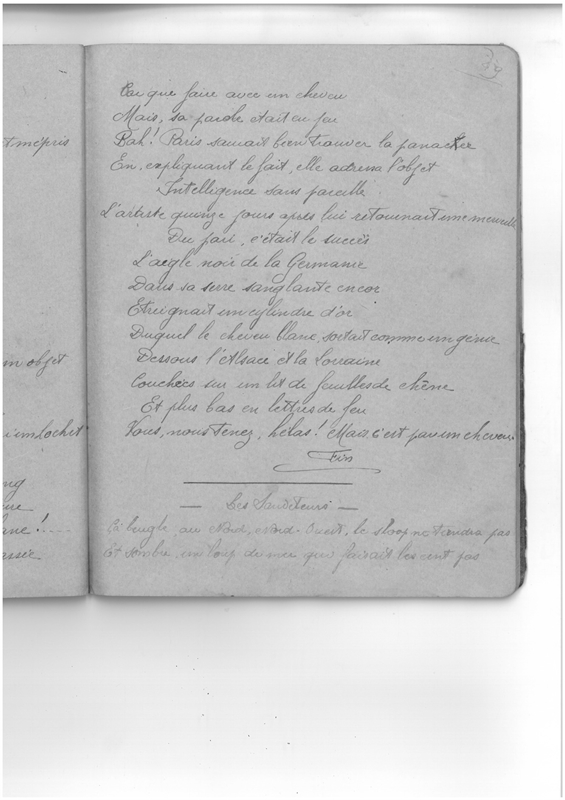 39
Car que faire avec un cheveu
Mais, sa parole était en jeu
Bah! Paris saurait bien trouver la panacée
En, expliquant le fait, elle adressa l'objet
Intelligence sans pareille.
L'artiste quinze jours après lui retournait une merveille
Du pari, c'était le succès
L'aigle noir de la Germanie
Dans sa serre sanglante encor
Etreignait un cylindre d'or
Duquel le cheveu blanc, sortait comme un génie
Dessous l'Alsace et la Lorraine
Couchées sur un lit de feuilles de chêne
Et plus bas en lettres de feu
Vous, nous tenez, hélas! Mais, c'est par un cheveu.
Fin
— Les Sauveteurs —
Ça beugle, au Nord, Nord-Ouest, le sloop ne tiendra pas
Et sombre, un loup de mer qui faisait les cent pas
t mépris
un objet